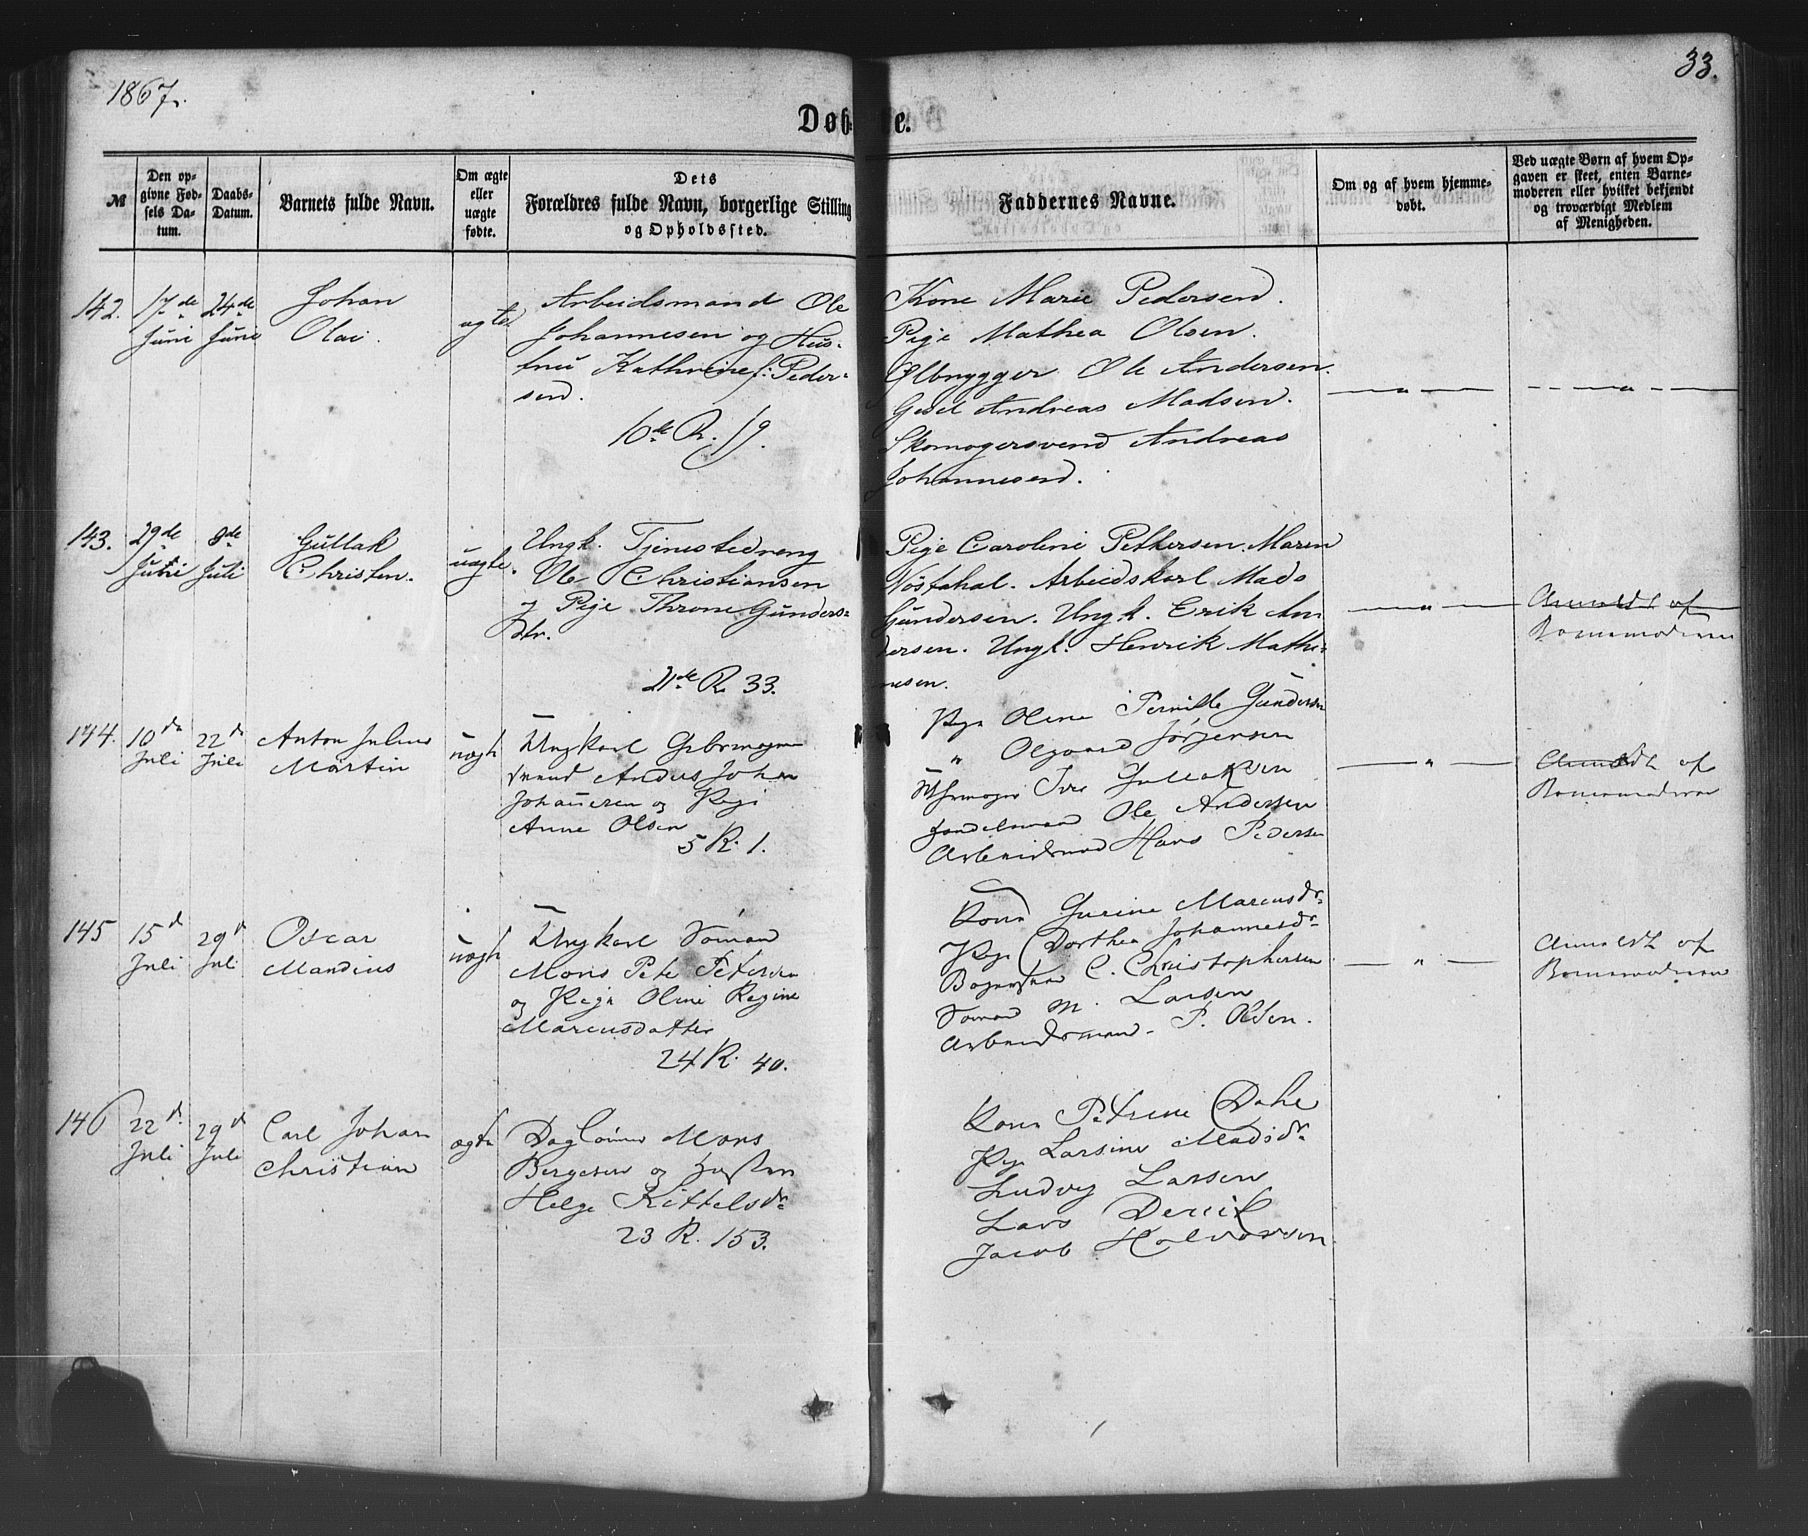 1867.
33.
Døb- e.
№
Den opgivne Fødsels Datum.
Daabs-Datum.
Barnets fulde Navn.
Om ægte eller uægte fødte.
Dets Forældres fulde Navn, borgerlige Stilling og Opholdssted.
Faddernes Navne.
Om og af hvem hjemmedøbt.
Ved uægte Børn af hvem Opgaven er skeet, enten Barnemoderen eller hvilket bekjendt og troværdigt Medlem af Menigheden.
142.
17de Juni
24de Juni
Johan
Olai.
ægte
Arbeidsmand Ole
Johannesen og Hus-
tru Kathrine f: Peder-
sen.
16de R. 19.
Kone Marie Pedersen.
Pige Mathea Olsen.
Ølbrygger Ole Andersen.
Andreas Madsen.
Skomagersvend Andreas
Johannesen.
— " —
— " —
143.
29de Juni
8de Juli
Gullak
Christen.
uægte.
Ungk. Tjenestedreng
Ole Christiansen
og Pige Throne Gunders-
dtr.
21de R. 33.
Pige Caroline Pettersen. Maren
Nöstahal. Arbeidskarl Mads
Gundersen. Ungk. Erik An-
dersen. Ungk. Henrik Mathi-
nesen.
— " —
Anmeldt af
Barnemoderen
144.
10d Juli
22d Juli
Anton Julius
Martin
uægte
Ungkarl
svend Anders Johan
Johannesen og Pige
Anne Olsen
5 R. 1.
Pige Oline Pernille Gundersen
" Olgaard Jørgensen
Iver Gullaksen
Handelsmand Ole Andersen
Arbeidsmand Hans Pedersen
— " —
Anmeldt af
Barnemoderen
145
15d Juli
29d Juli
Oscar
Mandius
uægte
Ungkarl Sømand
Mons Pete Petersen
og Pige Oline Regine
Marcusdatter
24 R. 40.
Kone Gurine Marcusdr.
Pige Dorthea Johannesdr.
C. Christophersen
Sømand M. Larsen
Arbeidsmand P. Olsen.
— " —
Anmeldt af
Barnemoderen
146
22d. Juli
29d Juli
Carl Johan
Christian
ægte
Dagløner Mons
Bergesen og Hustru
Helge Kittelsdr.
23 R. 153.
Kone Petrine Dahl
Pige Larsine Madsdr.
Ludvig Larsen
Lars
Jacob Halvorsen.